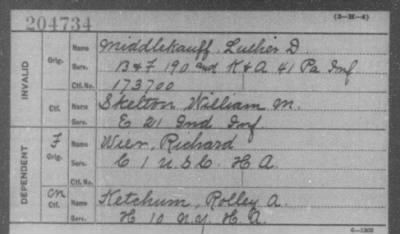 204734
(3-H-4)
INVALID Orig. Name Middlekauff, Luther D.
Serv. B & F 190 and K & A 41 Pa Inf
Ctf. No. 173700
Ctf. Name Skelton, William M.
Serv. E 21 Ind Inf
DEPENDENT F Orig. Name Wier, Richard
Serv. C 1 U.S.C. H A
Ctf. No.
Cn Ctf. Name Ketchum, Rolley A.
Serv. H 10 N.Y. H A